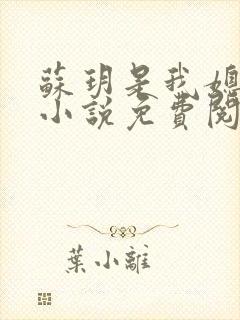 蘇玥是我媳
小說免費閱
葉小離